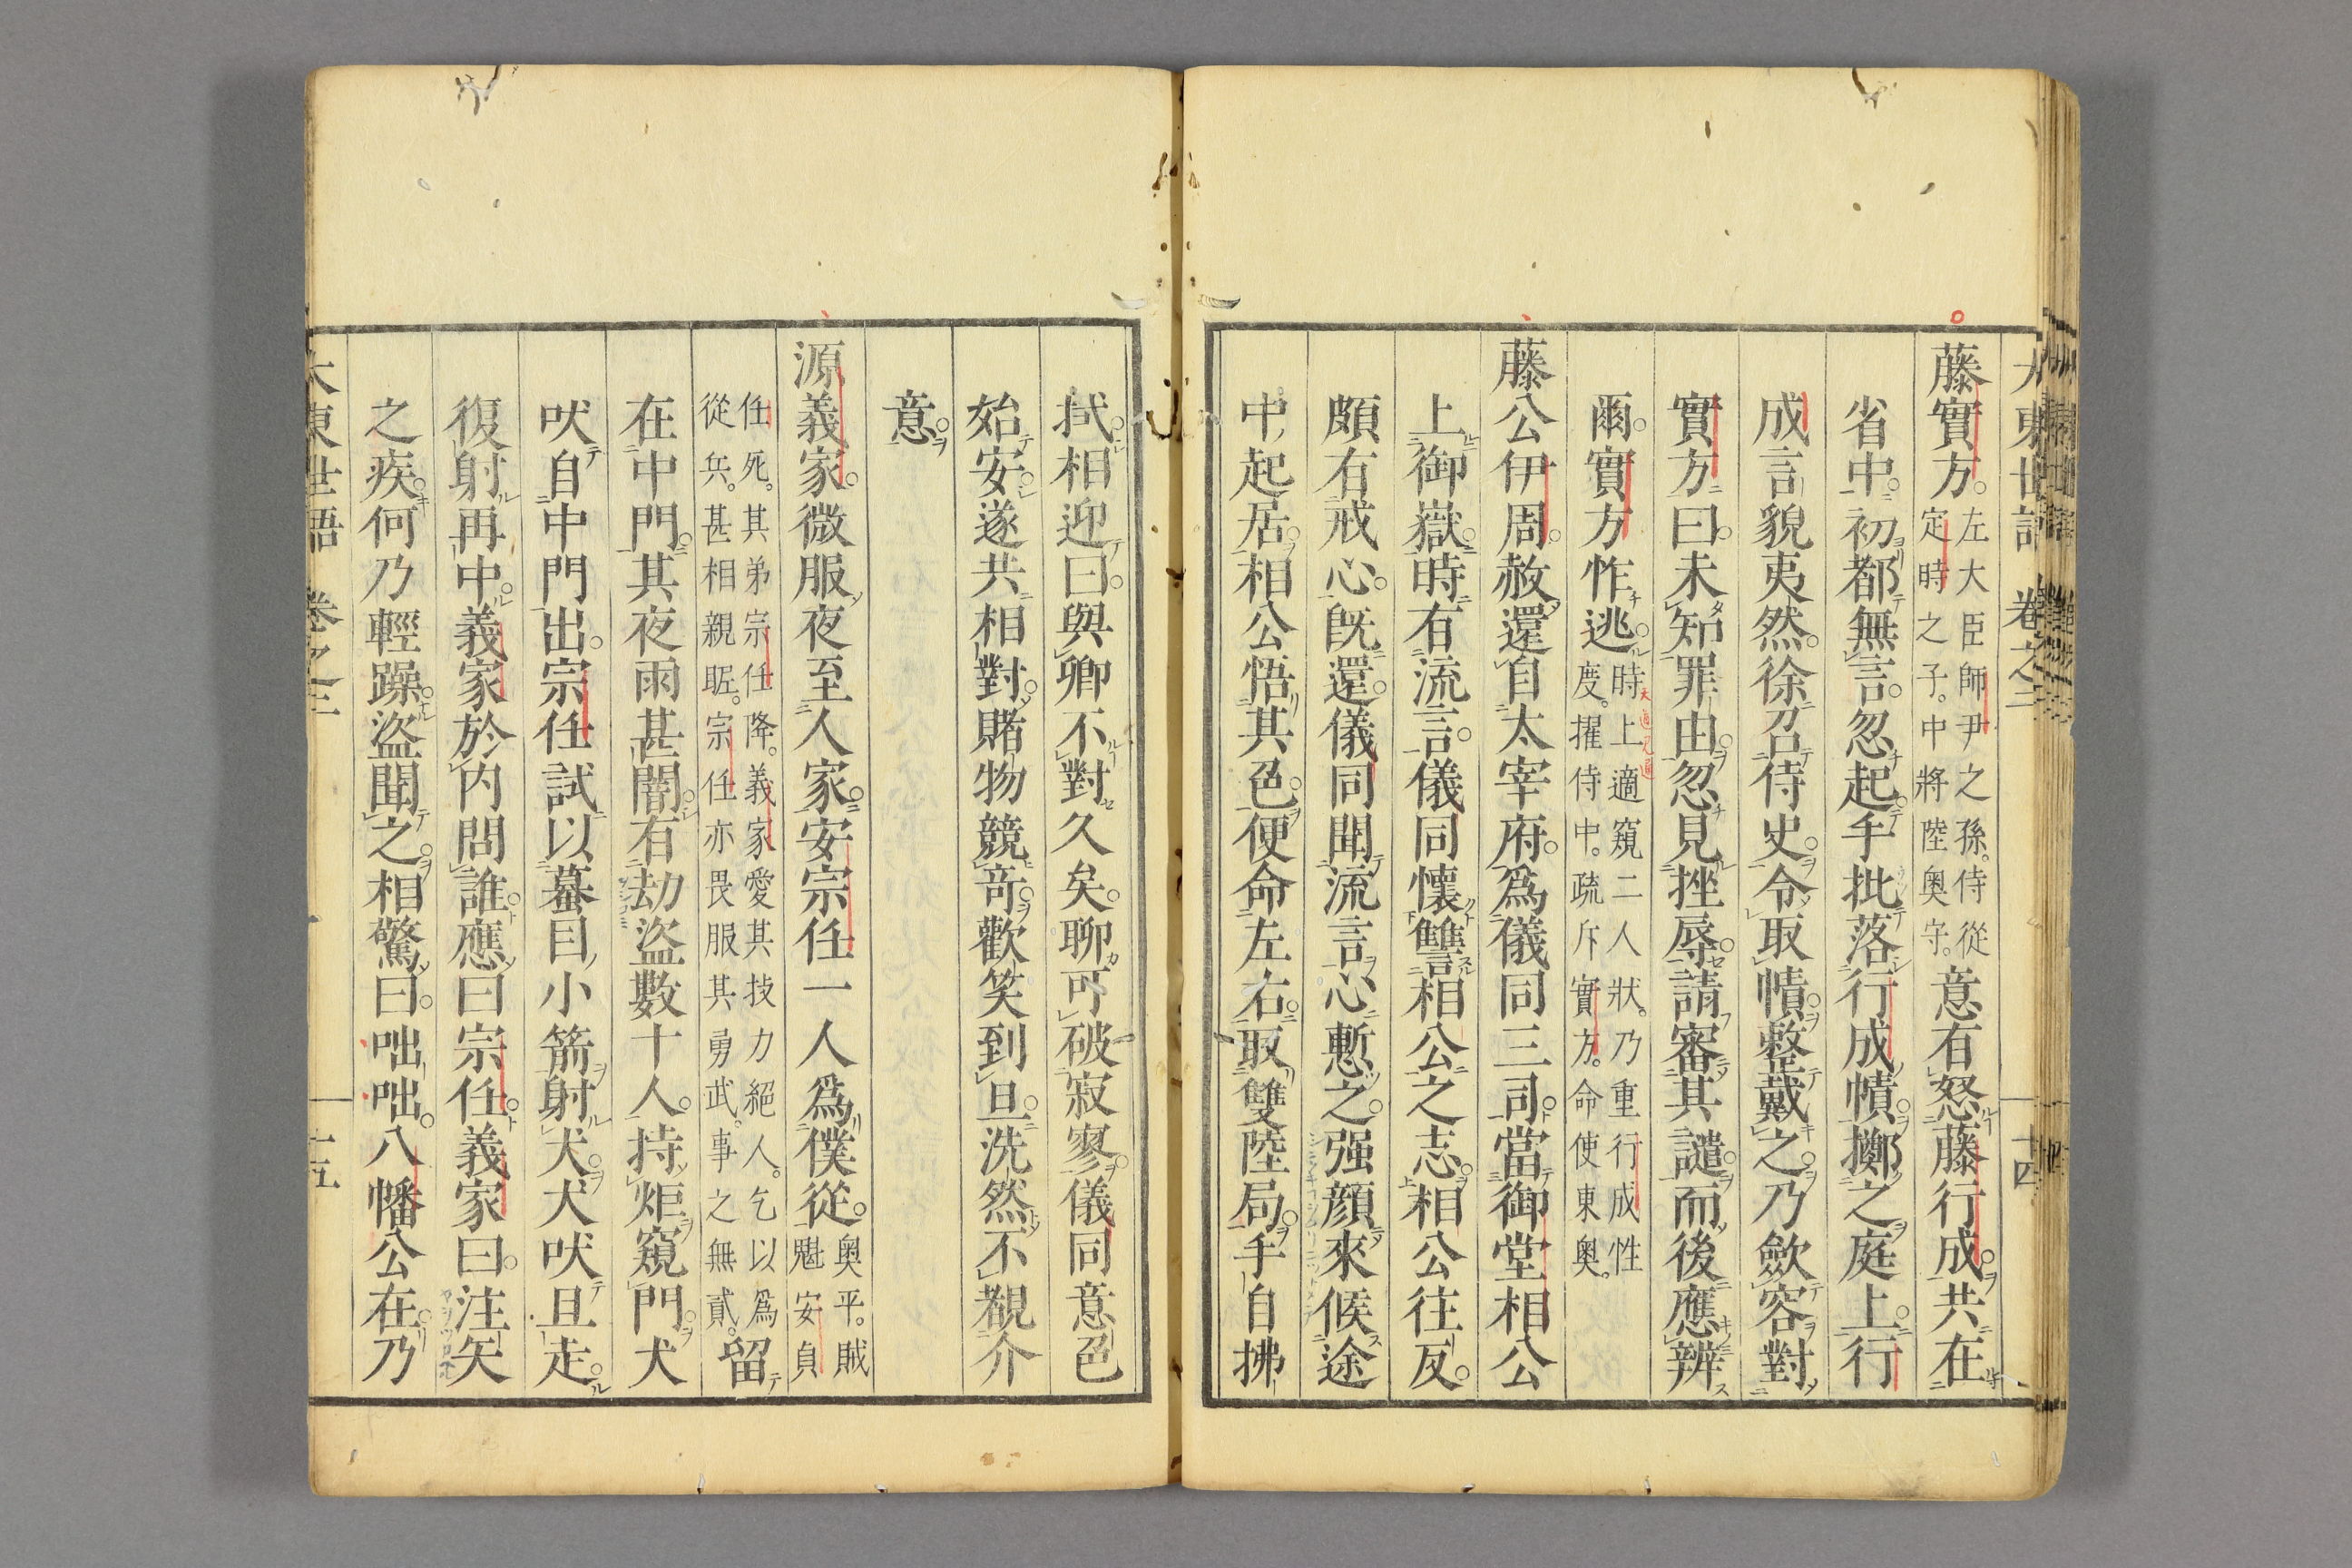 大東世語 卷之二 十四
藤實方。左大臣師尹之孫。侍從
定時之子。中將陸奧守。意有怒藤行成共在
省中。初都無言。忽起手批落行成幘擲之庭上。行
成言貌夷然。徐召侍史。令取幘整戴之。乃斂容對
實方曰。未知罪由。忽見挫辱。請審其譴。而後應辨
爾。實方怍逃。時上適窺二人狀。乃重行成性
度。擢侍中。疏斥實方。命使東奧。
藤公伊周。赦還自太宰府。爲儀同三司。當御堂相公
上御嶽。時有流言。儀同懷讐相公之志。相公往反。
頗有戒心。既還。儀同聞流言心慙之。强顔來候途
中起居。相公悟其色。便命左右。取雙陸局。手自拂
拭。相迎曰。與卿不對久矣。聊可破寂寥。儀同意色
始安。遂共相對。賭物競奇。歡笑到旦。洗然不覩介
意。
源義家。微服夜至人家。安宗任一人爲僕從。奧平。賊
魁安貞
任死。其弟宗任降。義家愛其技力絕人。乞以爲
從兵。甚相親昵。宗任亦畏服其勇武。事之無貳。留
在中門。其夜雨甚闇。有劫盜數十人。持炬窺門。犬
吠自中門出。宗任試以蟇目小箭射犬。犬吠且走。
復射再中。義家於内問誰。應曰宗任。義家曰。注矢
之疾。何乃輕躁。盜聞之。相驚曰。咄咄。八幡公在。乃
大東世語 卷之二 十五